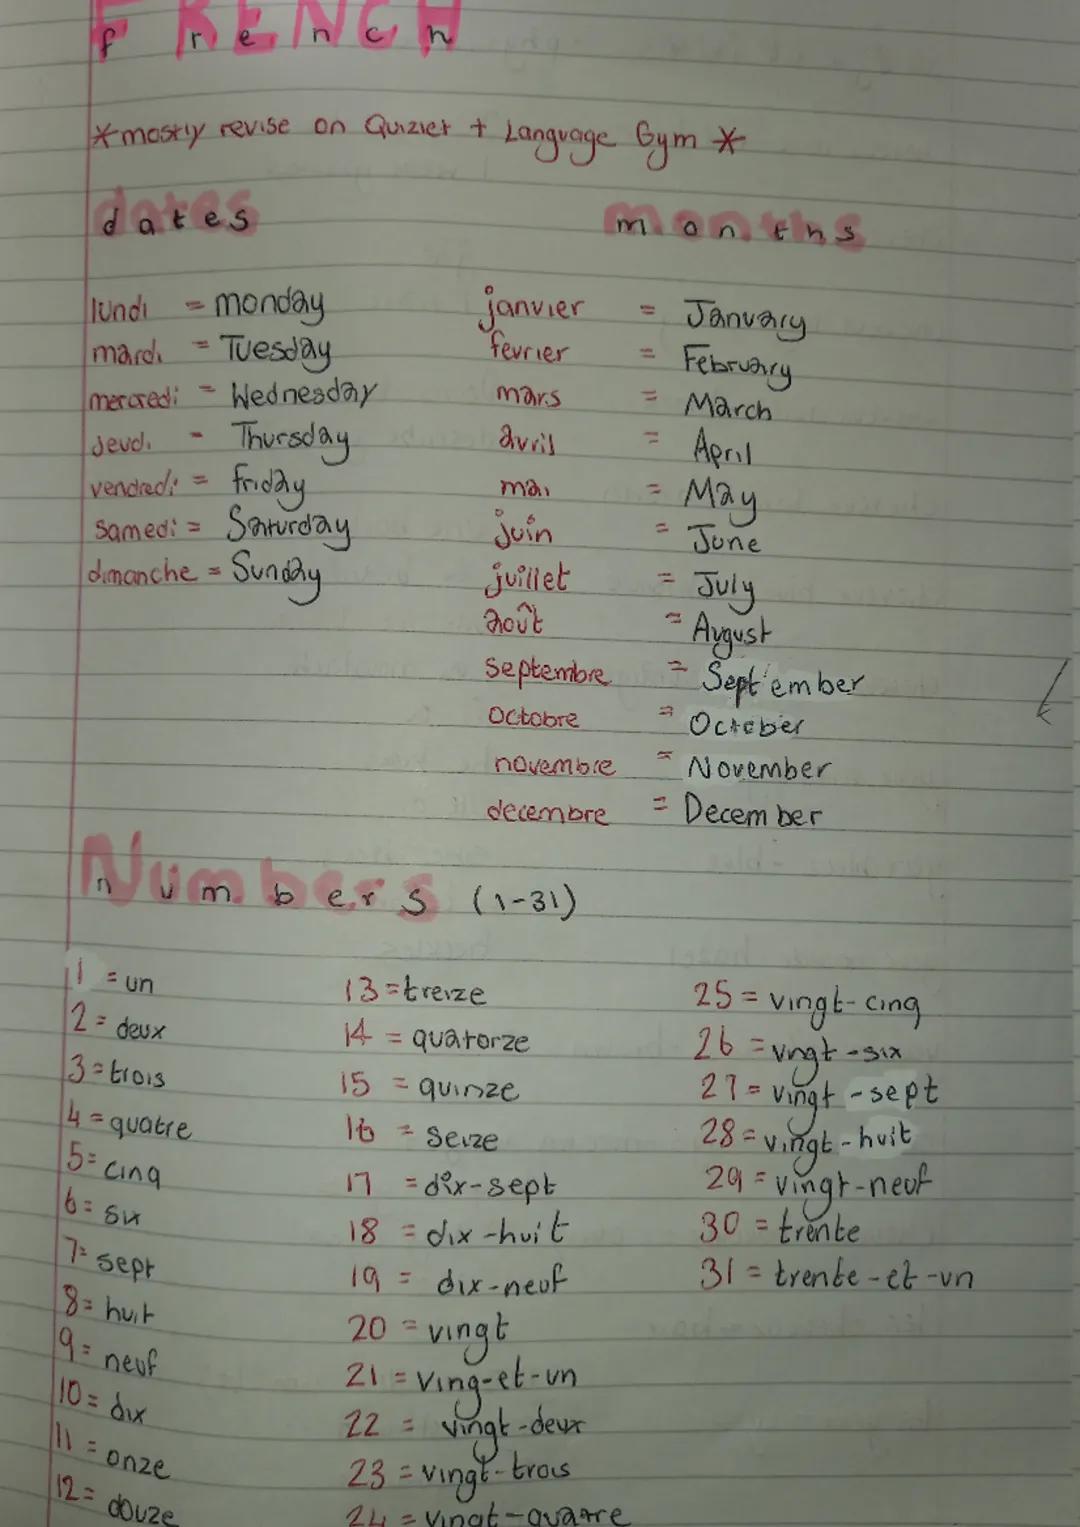 FRENCH
french
*mostly revise on Quizlet + Language Gym *
dates
lundi = monday
mardi = Tuesday
mercredi = Wednesday
Jeudi - Thursday
vendredi = friday
samedi = Saturday
dimanche = Sunday
months
janvier = January
fevrier = February
mars = March
avril = April
mai = May
juin = June
juillet = July
août = August
septembre = September
octobre = October
novembre = November
decembre = December
Numbers
numbers (1-31)
1 = un
2 = deux
3 = trois
4 = quatre
5 = cinq
6 = six
7 = sept
8 = huit
9 = neuf
10 = dix
11 = onze
12 = douze
13 = treize
14 = quatorze
15 = quinze
16 = seize
17 = dix-sept
18 = dix-huit
19 = dix-neuf
20 = vingt
21 = ving-et-un
22 = vingt-deux
23 = vingt-trois
24 = vingt-quatre
25 = vingt-cinq
26 = vingt-six
27 = vingt-sept
28 = vingt-huit
29 = vingt-neuf
30 = trente
31 = trente-et-un